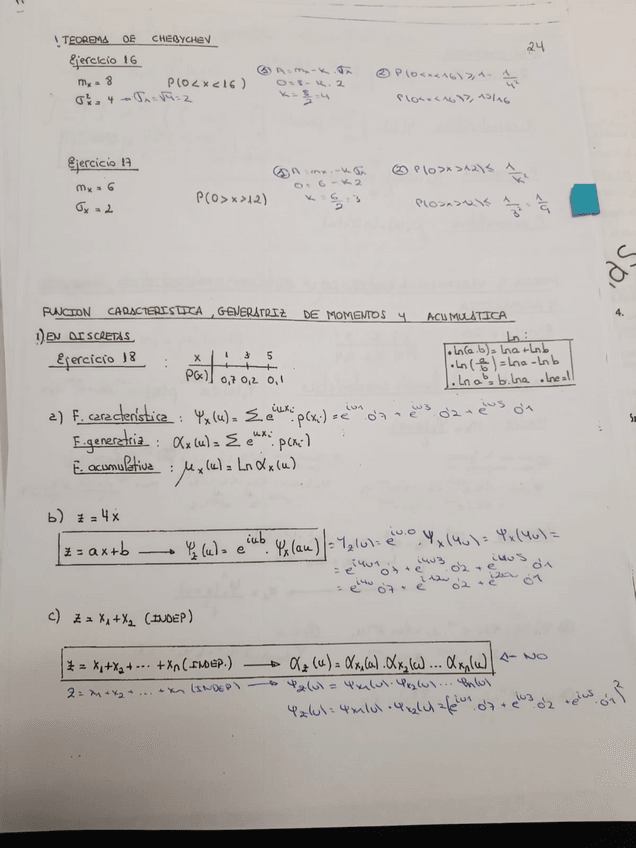 ! TEOREMA DE CHEBYCHEV
24
Ejercicio 16
mx = 8 P(0<x<16)
σx² = 4 → σx = √4 = 2
① A = mx - k · σx
0 = 8 - k · 2
k = 8/2 = 4
② P(0<x<16) ≥ 1 - 1/4²
P(0<x<16) ≥ 15/16
Ejercicio 17
mx = 6
σx = 2
P(0>x>12)
① A = mx - k σx
0 = 6 - k2
k = 6/2 = 3
② P(0>x>12) ≤ 1/k²
P(0>x>12) ≤ 1/3² = 1/9
FUNCION CARACTERISTICA, GENERATRIZ DE MOMENTOS y ACUMULATICA
1) EN DISCRETAS
Ejercicio 18 :
x | 1 | 3 | 5
P(x) | 0,7 | 0,2 | 0,1
Ln:
• Ln(a.b) = Lna + Lnb
• Ln(a/b) = Lna - Lnb
• Ln aᵇ = b.Lna • lne = 1
a) F. característica : Ψx(u) = Σ e^iuxi · p(xi) = e^iu1 · 0'7 + e^iu3 · 0'2 + e^iu5 · 0'1
F. generatriz : αx(u) = Σ e^uxi · p(xi)
F. acumulativa : μx(u) = Ln αx(u)
b) z = 4x
z = ax+b → Ψz(u) = e^iub · Ψx(au) = Ψz(u) = e^iu·0 · Ψx(4u) = Ψx(4u) =
= e^i4u1 · 0'7 + e^i4u3 · 0'2 + e^i4u5 · 0'1
= e^i4u · 0'7 + e^i12u · 0'2 + e^i20u · 0'1
c) z = x1 + x2 (INDEP)
z = x1+x2+ ... + xn (INDEP.) → αz(u) = αx1(u) · αx2(u) ... αxn(u) ← NO
z = x1+x2+ ... + xn (INDEP) → Ψz(u) = Ψx1(u) · Ψx2(u) ... Ψn(u)
Ψz(u) = Ψx1(u) · Ψx2(u) = [e^iu1 · 0'7 + e^iu3 · 0'2 + e^iu5 · 0'1)²
4.